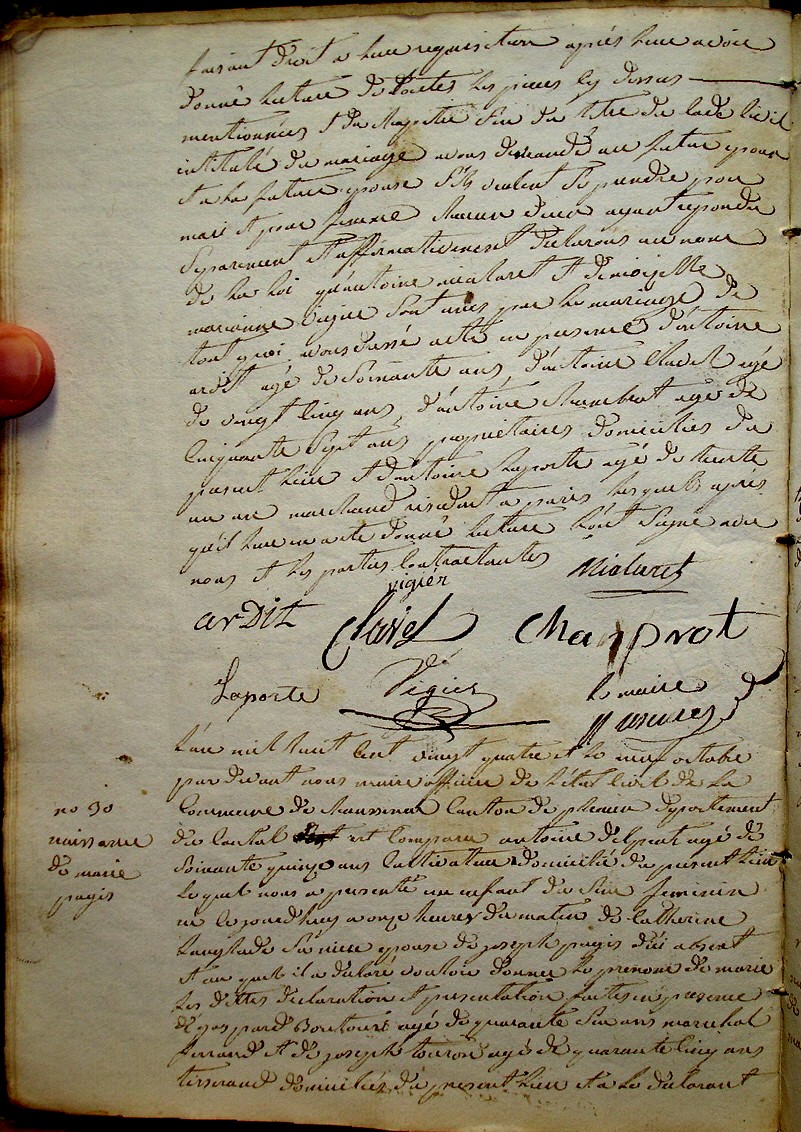 faisant droit a leur requisition après leur avoir
donné lecture de toutes les pieces cy dessus
mentionnées et du chapitre six du titre du code civil
intitulé du mariage avons demandé au futur epoux
et a la future epouse s'ils veulent se prendre pour
mari et pour femme chacun d'eux ayant repondu
séparement et affirmativement declarons au nom
de la loi qu'antoine mialaret et demoiselle
marianne vigier sont unis par le mariage de
tout quoi avons dressé acte en presence d'antoine
ardit agé de soixante ans, d'antoine clavel agé
de vingt cinq ans, d'antoine agé de
cinquante sept ans propriétaires domiciliés du
present lieu et d'antoine laporte agé de trente
un an marchand residant a paris lesquels après
qu'il leur en a été donné lecture l'ont signé avec
nous et les parties contractantes
vigier Mialaret
arDit Clavel Chanprot
Laporte Vigier le maire
L'an mil huit cent vingt quatre et le octobre
par devant nous maire officier de l'état civil de la
Commune de Canton de departement
du Cantal est comparu antoine delprat agé de
soixante quinze ans cultivateur domicilié du present lieu
lequel nous a presenté un enfant du sexe feminin
né le jourdhuy a onze heures du matin de Catherine
Langlade sa niece epouse de joseph pagis d'ici absent
et au quel il a déclaré vouloir donner le prenom de marie
les dittes declaration et presentation faites en presence
de gaspard agé de quarante six ans marechal
ferrand et de joseph agé de quarante cinq ans
tisserand domiciliés du present lieu et a le déclarant
no 30
naissance
de marie
pagis